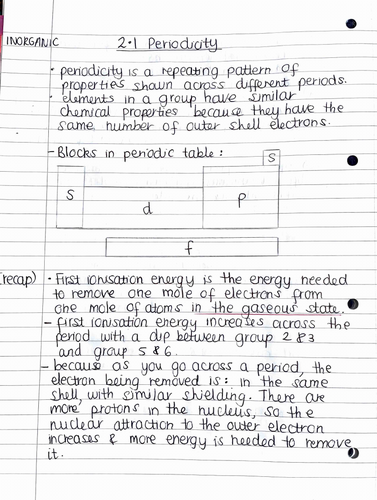 INORGANIC
2.1 Periodicity
• periodicity is a repeating pattern of
properties shown across different periods.
• elements in a group have similar
chemical properties because they have the
same number of outer shell electrons.
- Blocks in periodic table :
S
S
d
p
f
(recap) • First ionisation energy is the energy needed
to remove one mole of electrons from
one mole of atoms in the gaseous state.
- first ionisation energy increases across the
period with a dip between group 2 & 3
and group 5 & 6.
- because as you go across a period, the
electron being removed is: in the same
shell, with similar shielding. There are
more protons in the nucleus, so the
nuclear attraction to the outer electron
increases & more energy is needed to remove
it.